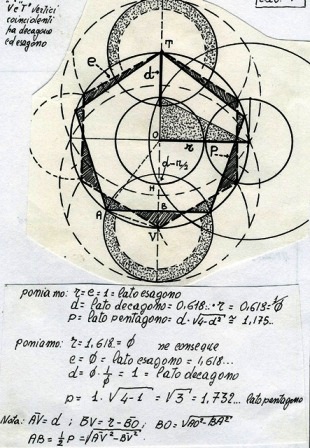 V e T vertici
coincidenti
ha decagono
ed esagono
T
e
d
O
r
P
d=r/2
H
A
B
V
poniamo: r = e = 1 = lato esagono
d = lato decagono = 0,618... · r = 0,618 = 1/ϕ
p = lato pentagono = d · √4-d² ≅ 1,175...
poniamo: r = 1,618 = ϕ ne consegue
e = ϕ = lato esagono = 1,618...
d = ϕ · 1/ϕ = 1 = lato decagono
p = 1 · √4-1 = √3 = 1,732... lato pentagono
Nota: AV = d ; BV = r - BO ; BO = √AO²-BA²
AB = 1/2 p = √AV²-BV²